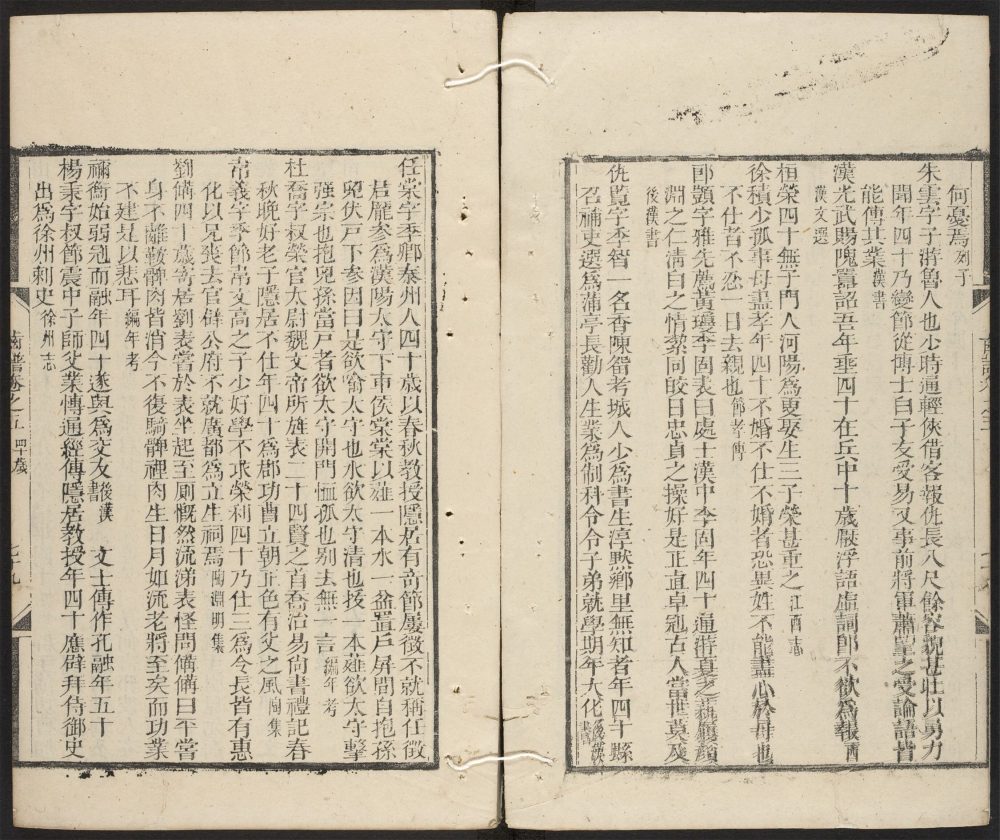 何憂焉列子
朱雲字子游魯人也少時通輕俠借客報仇長八尺餘容貌甚壯以勇力
聞年四十乃變節從博士白子友受易又事前將軍蕭望之受論語皆
能傳其業漢書
漢光武賜隗囂詔吾年垂四十在兵中十歲厭浮語虛詞卽不欲爲報西
漢文選
桓榮四十無子門人何陽爲更娶生三子榮甚重之江西志
徐積少孤事母盡孝年四十不婚不仕不婚者恐異姓不能盡心於母也
不仕者不忍一日去親也節孝傳
囘顗字雅先薦黃瓊李固表曰處士漢中李固年四十通游夏之蓺履顔
淵之仁淸白之情絜同皎日忠貞之操好是正直卓冠古人當世莫及
後漢書
仇覽字季智一名香陳留考城人少爲書生淳默鄉里無知者年四十縣
召補吏選爲蒲亭長勸人生業爲制科令令子弟就學明年大化後漢書
任棠字季卿泰州人四十歲以春秋教授隱居有奇節屢徵不就稱任徵
君龐參爲漢陽太守下車侯棠棠以薤一本水一盆置戶屏間自抱孫
兒伏戸下參因曰是欲喻太守也水欲太守清也拔一本薤欲太守擊
强宗也抱兒孫當戸者欲太守開門恤孤也别去無一言編年考
杜喬字叔榮官太尉魏文帝所旌表二十四賢之首喬治易尙書禮記春
秋晚好老子隱居不仕年四十爲郡功曹立朝正色有父之風陶集
常義字季節常文高之子少好學不求榮利四十乃仕三爲令長皆有惠
化以兄喪去官辟公府不就廣都爲立生祠焉陶淵明集
劉備四十歲寄居劉表嘗於表坐起至厠慨然流涕表怪問備備曰平當
身不離鞍髀肉皆消今不復騎髀裡肉生日月如流老將至矣而功業
不建是以悲耳編年考
禰衡始弱冠而融年四十遂與爲交友後漢書　文士傳作孔融年五十
楊秉字叔節震中子師父業博通經傳隱居教授年四十應辟拜侍御史
出爲徐州刺史徐州志
齒譜卷之五　四十歲　七十九